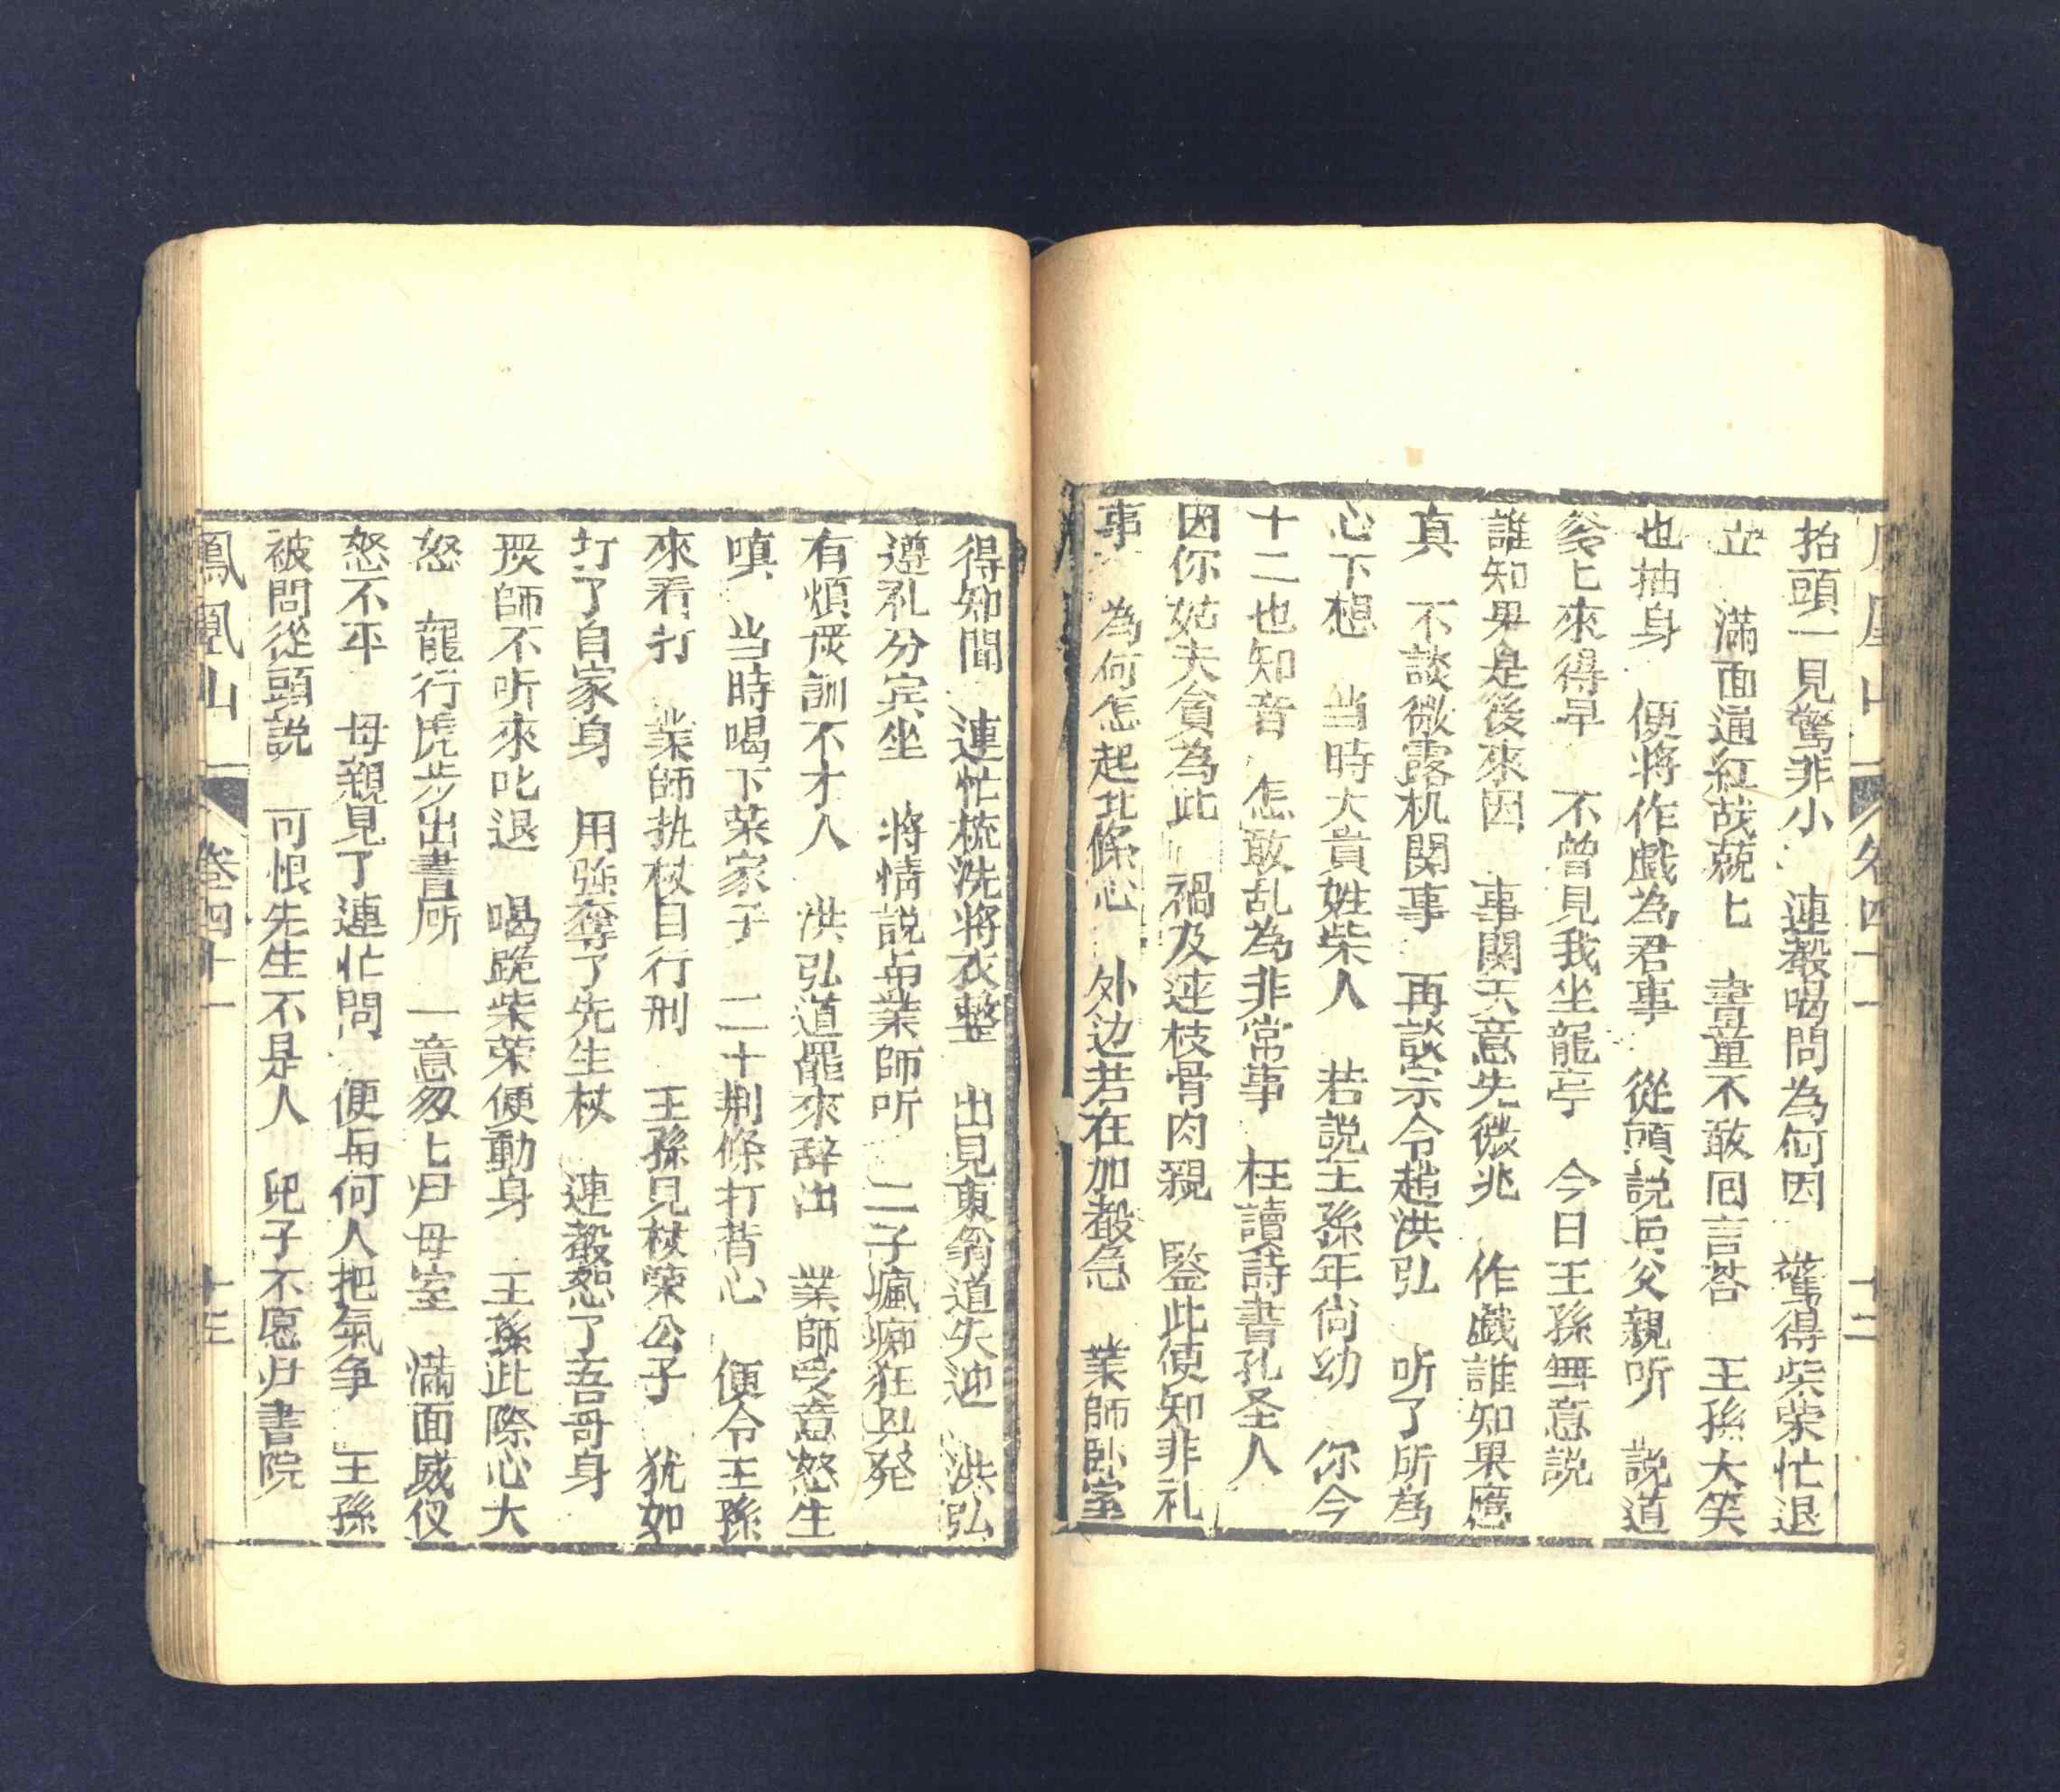 卷四十一
十二
抬頭一見驚非小 連聲喝問為何因 驚得柴荣忙退
立 滿面通紅战兢匕 書童不敢囘言荅 王孫大笑
也抽身 便將作戯為君事 從頭説与父親听 説道
爹匕來得早 不曾見我坐龍亭 今日王孫無意説
誰知果是後來因 事関天意先微兆 作戯誰知果應
真 不談微露机関事 再談宗令趙洪弘 听了所為
心下想 当時大責姓柴人 若説王孫年尚幼 你今
十二也知音 怎敢乱為非常事 枉讀詩書孔圣人
因你姑夫貧為此 禍及連枝骨肉親 鑒此便知非礼
事 為何怎起此條心 外边若在加聲急 業師卧室
得知聞 連忙梳洗將衣整 出見東翁道失迎 洪弘
遵礼分宾坐 將情説与業師听 二子瘋癫狂具発
有煩嚴訓不才人 洪弘道罷來辞出 業師受意怒生
嗔 当時喝下荣家子 二十荆條打背心 便令王孫
來看打 業師执杖自行刑 王孫見杖榮公子 犹如
打了自家身 用強奪了先生杖 連聲恕了吾哥身
嚴師不听來叱退 喝跪柴荣便動身 王孫此際心大
怒 龍行虎步出書所 一意匆匕归母室 滿面威仪
怒不平 母親見了連忙問 便与何人把氣争 王孫
被問從頭説 可恨先生不是人 兒子不愿归書院
鳳凰山
卷四十一
十三